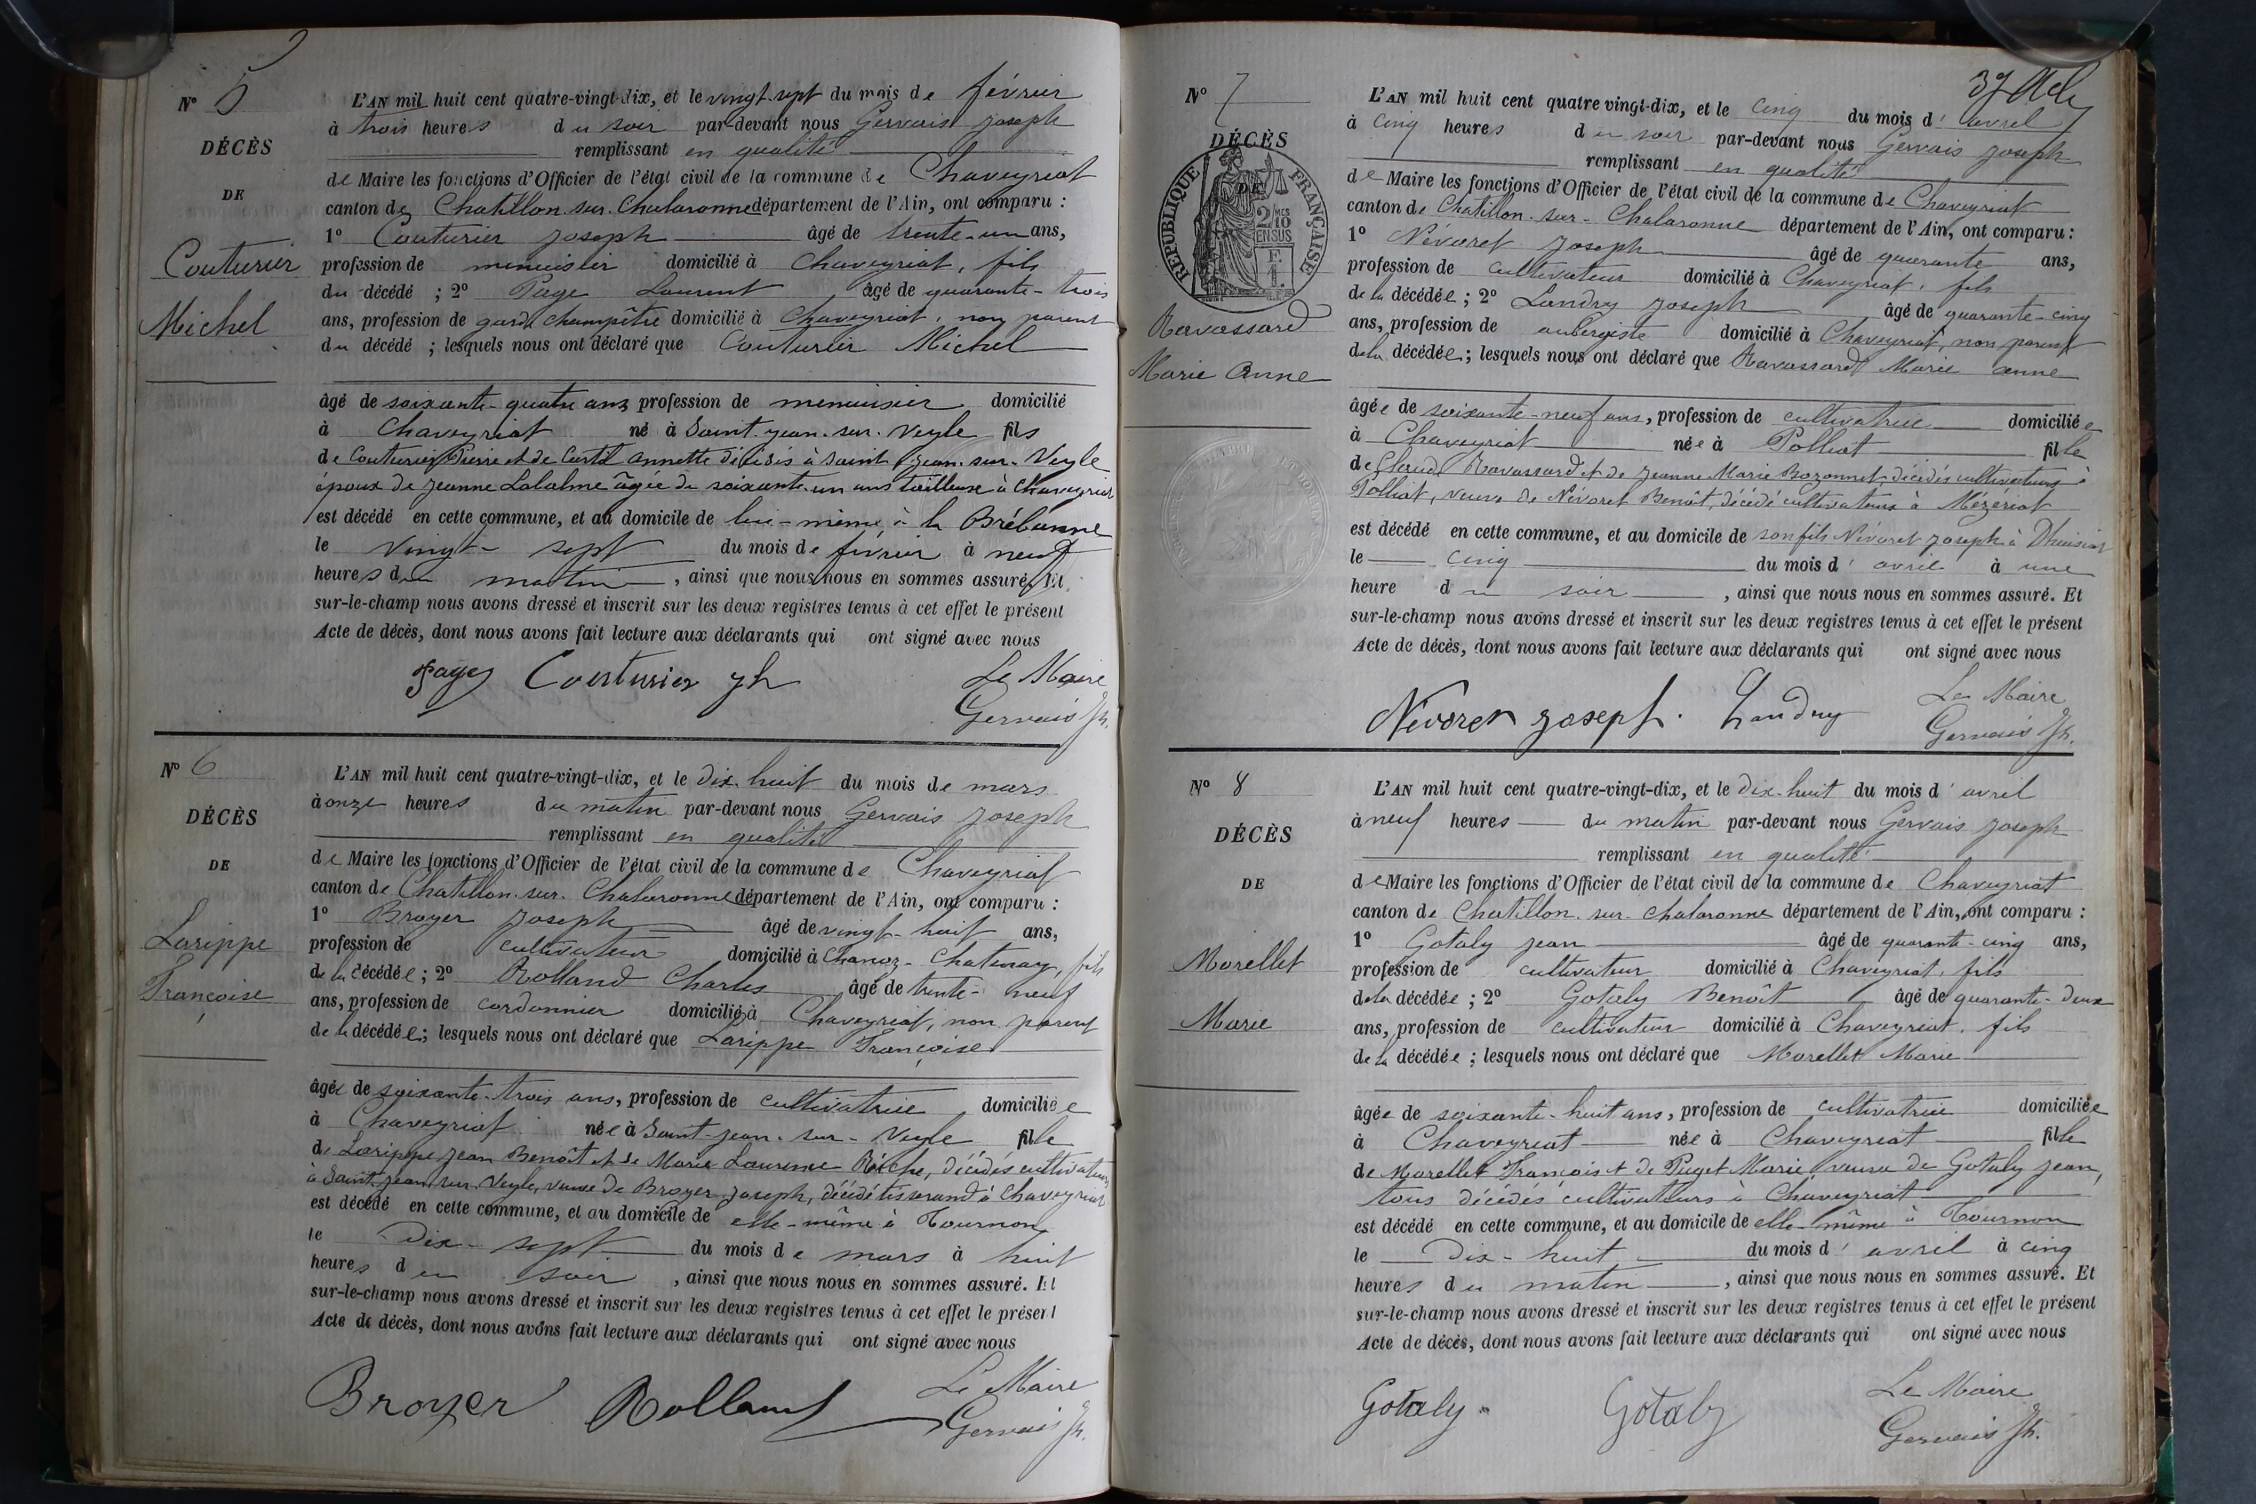 N° 5
DÉCÈS
DE
Couturier
Michel
L'AN mil huit cent quatre-vingt-dix, et le vingt-sept du mois de février
à trois heures du soir par-devant nous Gervais Joseph
remplissant en qualité
de Maire les fonctions d'Officier de l'état civil de la commune de Chaveyriat
canton de Chatillon-sur-Chalaronne département de l'Ain, ont comparu :
1° Couturier Joseph âgé de trente-un ans,
profession de menuisier domicilié à Chaveyriat, fils
du décédé ; 2° Page Laurent âgé de quarante-trois
ans, profession de garde champêtre domicilié à Chaveyriat, non parent
du décédé ; lesquels nous ont déclaré que Couturier Michel
âgé de soixante-quatre ans profession de menuisier domicilié
à Chaveyriat né à Saint-Jean-sur-Veyle fils
de Couturier Pierre et de Annette décédés à Saint-Jean-sur-Veyle
époux de Jeanne Lalalme âgée de soixante-un ans tailleuse à Chaveyriat
est décédé en cette commune, et au domicile de lui-même à la
le vingt-sept du mois de février à neuf
heures du matin, ainsi que nous nous en sommes assuré. Et
sur-le-champ nous avons dressé et inscrit sur les deux registres tenus à cet effet le présent
Acte de décès, dont nous avons fait lecture aux déclarants qui ont signé avec nous
Page Couturier Jh Le Maire
Gervais Jh.
N° 6
DÉCÈS
DE
Larippe
Françoise
L'AN mil huit cent quatre-vingt-dix, et le dix-huit du mois de mars
à onze heures du matin par-devant nous Gervais Joseph
remplissant en qualité
de Maire les fonctions d'Officier de l'état civil de la commune de Chaveyriat
canton de Chatillon-sur-Chalaronne département de l'Ain, ont comparu :
1° Broyer Joseph âgé de vingt-huit ans,
profession de cultivateur domicilié à Chanoz-Chatenay, fils
de la décédée ; 2° Rolland Charles âgé de trente-neuf
ans, profession de cordonnier domicilié à Chaveyriat, non parent
de la décédée ; lesquels nous ont déclaré que Larippe Françoise
âgée de soixante-trois ans, profession de cultivatrice domiciliée
à Chaveyriat née à Saint-Jean-sur-Veyle fille
de Larippe Jean Benoît et de Marie Laurence décédés cultivateurs
à Saint-Jean-sur-Veyle, veuve de Broyer Joseph, décédé tisserand à Chaveyriat
est décédé en cette commune, et au domicile de elle-même à Tournon
le dix-sept du mois de mars à huit
heures du soir, ainsi que nous nous en sommes assuré. Et
sur-le-champ nous avons dressé et inscrit sur les deux registres tenus à cet effet le présent
Acte de décès, dont nous avons fait lecture aux déclarants qui ont signé avec nous
Broyer Rolland Le Maire
Gervais Jh.
37
N° 7
DÉCÈS
DE
RÉPUBLIQUE FRANÇAISE
2/10 MES EN SUS
F. 1.
Ravassard
Marie Anne
L'AN mil huit cent quatre vingt-dix, et le cinq du mois d'avril
à cinq heures du soir par-devant nous Gervais Joseph
remplissant en qualité
de Maire les fonctions d'Officier de l'état civil de la commune de Chaveyriat
canton de Chatillon-sur-Chalaronne département de l'Ain, ont comparu :
1° Névoret Joseph âgé de quarante ans,
profession de cultivateur domicilié à Chaveyriat, fils
de la décédée ; 2° Landry Joseph âgé de quarante-cinq
ans, profession de aubergiste domicilié à Chaveyriat, non parent
de la décédée ; lesquels nous ont déclaré que Ravassard Marie Anne
âgée de soixante-neuf ans, profession de cultivatrice domiciliée
à Chaveyriat née à Polliat fille
de Claude Ravassard et de Jeanne Marie Bozonnet, décédés cultivateurs à
Polliat, veuve de Névoret Benoît, décédé cultivateur à Mézériat
est décédé en cette commune, et au domicile de son fils Névoret Joseph à
le cinq du mois d'avril à une
heure du soir, ainsi que nous nous en sommes assuré. Et
sur-le-champ nous avons dressé et inscrit sur les deux registres tenus à cet effet le présent
Acte de décès, dont nous avons fait lecture aux déclarants qui ont signé avec nous
Névoret Joseph. Landry Le Maire
Gervais Jh.
N° 8
DÉCÈS
DE
Morellet
Marie
L'AN mil huit cent quatre-vingt-dix, et le dix-huit du mois d'avril
à neuf heures du matin par-devant nous Gervais Joseph
remplissant en qualité
de Maire les fonctions d'Officier de l'état civil de la commune de Chaveyriat
canton de Chatillon-sur-Chalaronne département de l'Ain, ont comparu :
1° Gotaly Jean âgé de quarante-cinq ans,
profession de cultivateur domicilié à Chaveyriat, fils
de la décédée ; 2° Gotaly Benoît âgé de quarante-deux
ans, profession de cultivateur domicilié à Chaveyriat, fils
de la décédée ; lesquels nous ont déclaré que Morellet Marie
âgée de soixante-huit ans, profession de cultivatrice domiciliée
à Chaveyriat née à Chaveyriat fille
de Morellet François et de Puget Marie veuve de Gotaly Jean,
tous décédés cultivateurs à Chaveyriat
est décédé en cette commune, et au domicile de elle-même à Tournon
le dix-huit du mois d'avril à cinq
heures du matin, ainsi que nous nous en sommes assuré. Et
sur-le-champ nous avons dressé et inscrit sur les deux registres tenus à cet effet le présent
Acte de décès, dont nous avons fait lecture aux déclarants qui ont signé avec nous
Gotaly Gotaly Le Maire
Gervais Jh.